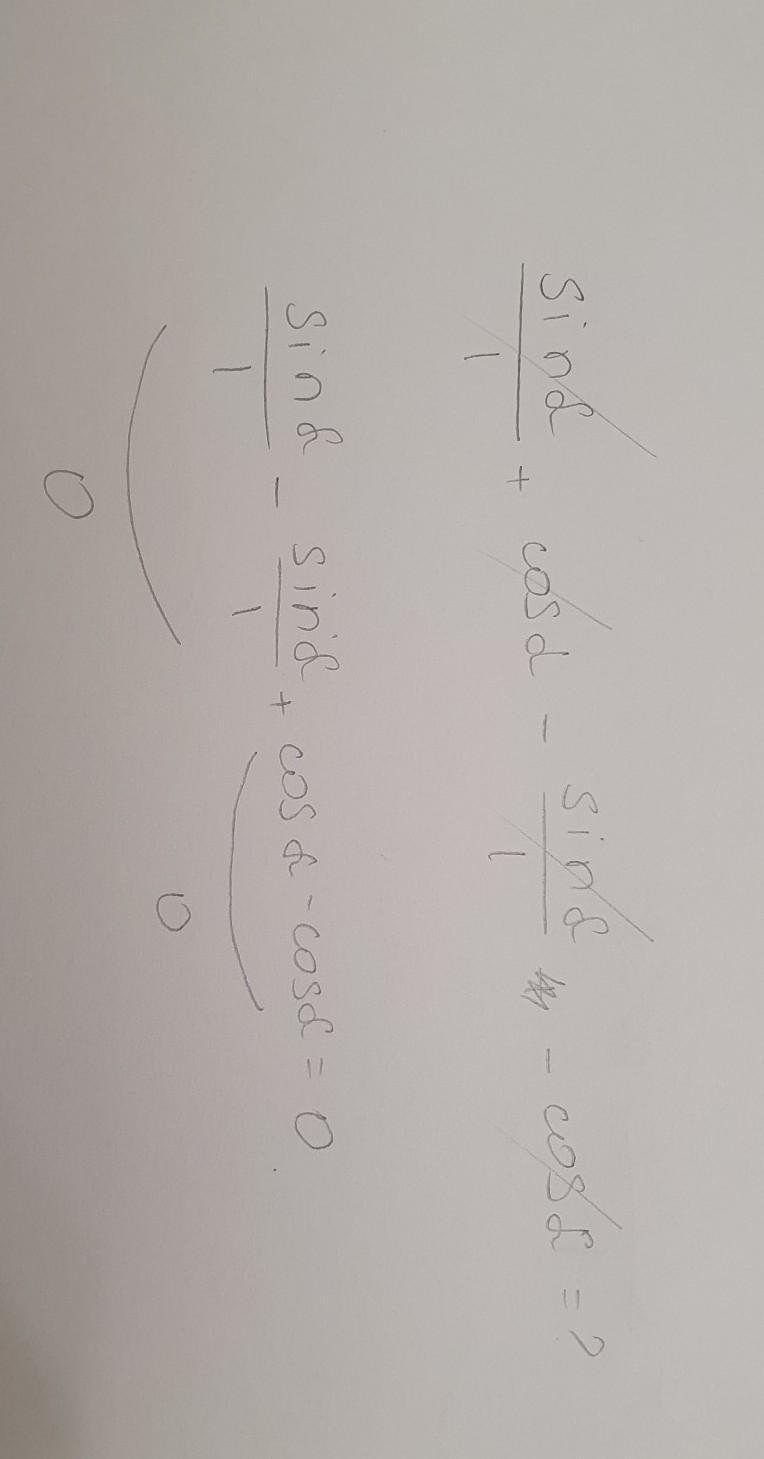 sinα/1 + cosα - sinα/1 - cosα = ?
sinα/1 - sinα/1 + cosα - cosα = 0
0 0